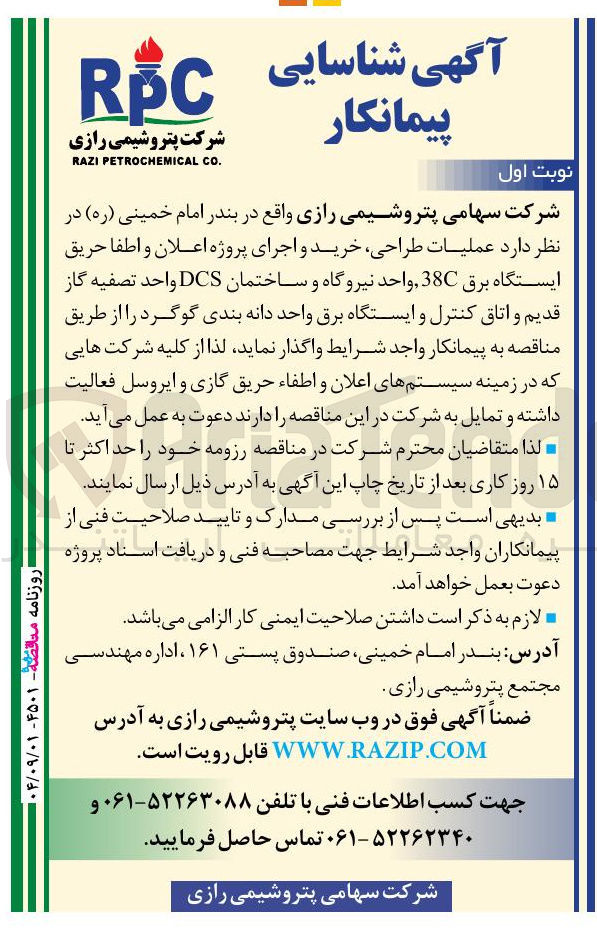 RPC
شرکت پتروشیمی رازی
RAZI PETROCHEMICAL CO.
آگهی شناسایی
پیمانکار
نوبت اول
شرکت سهامی پتروشیمی رازی واقع در بندر امام خمینی (ره) در
نظر دارد عملیات طراحی، خرید و اجرای پروژه اعلان و اطفا حریق
ایستگاه برق 38C,واحد نیروگاه و ساختمان DCS واحد تصفیه گاز
قدیم و اتاق کنترل و ایستگاه برق واحد دانه بندی گوگرد را از طریق
مناقصه به پیمانکار واجد شرایط واگذار نماید، لذا از کلیه شرکت هایی
که در زمینه سیستم‌های اعلان و اطفاء حریق گازی و ایروسل فعالیت
داشته و تمایل به شرکت در این مناقصه را دارند دعوت به عمل می آید.
■ لذا متقاضیان محترم شرکت در مناقصه رزومه خود را حداکثر تا
۱۵ روز کاری بعد از تاریخ چاپ این آگهی به آدرس ذیل ارسال نمایند.
■ بدیهی است پس از بررسی مدارک و تایید صلاحیت فنی از
پیمانکاران واجد شرایط جهت مصاحبه فنی و دریافت اسناد پروژه
دعوت بعمل خواهد آمد.
■ لازم به ذکر است داشتن صلاحیت ایمنی کار الزامی می‌باشد.
آدرس: بندر امام خمینی، صندوق پستی ۱۶۱ ، اداره مهندسی
مجتمع پتروشیمی رازی .
ضمناً آگهی فوق در وب سایت پتروشیمی رازی به آدرس
WWW.RAZIP.COM قابل رویت است.
جهت کسب اطلاعات فنی با تلفن ۵۲۲۶۳۰۸۸-۰۶۱ و
۵۲۲۶۲۳۴۰ -۰۶۱ تماس حاصل فرمایید.
شرکت سهامی پتروشیمی رازی
روزنامه مناقصه - ۴۵۰۱ - ۰۴/۰۹/۰۱
AriaTend